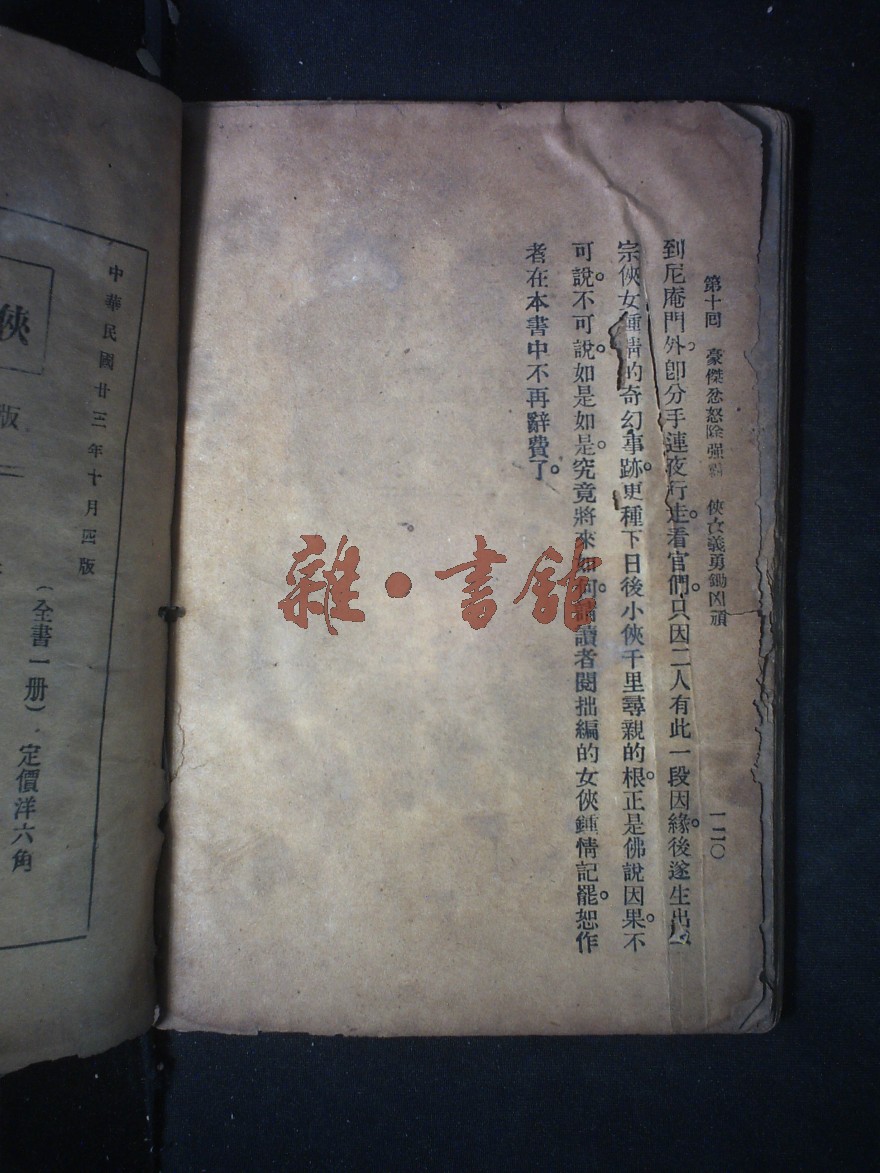 第十回 豪傑忿怒除强 俠女義勇鋤凶頑 一二〇
到尼庵門外。卽分手連夜行走。看官們。只因二人有此一段因緣。後遂生出一
宗俠女種情的奇幻事跡。更種下日後小俠千里尋親的根。正是佛說因果。不
可說。不可說。如是如是。究竟將來如何。讀者閱拙編的女俠鍾情記罷。恕作
者在本書中不再辭費了。
雜·書館
中華民國廿三年十月四版
俠
版
(全書一册)．定價洋六角